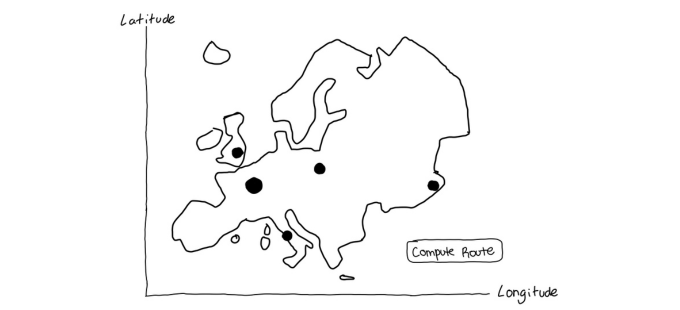 Latitude
Compute Route
Longitude